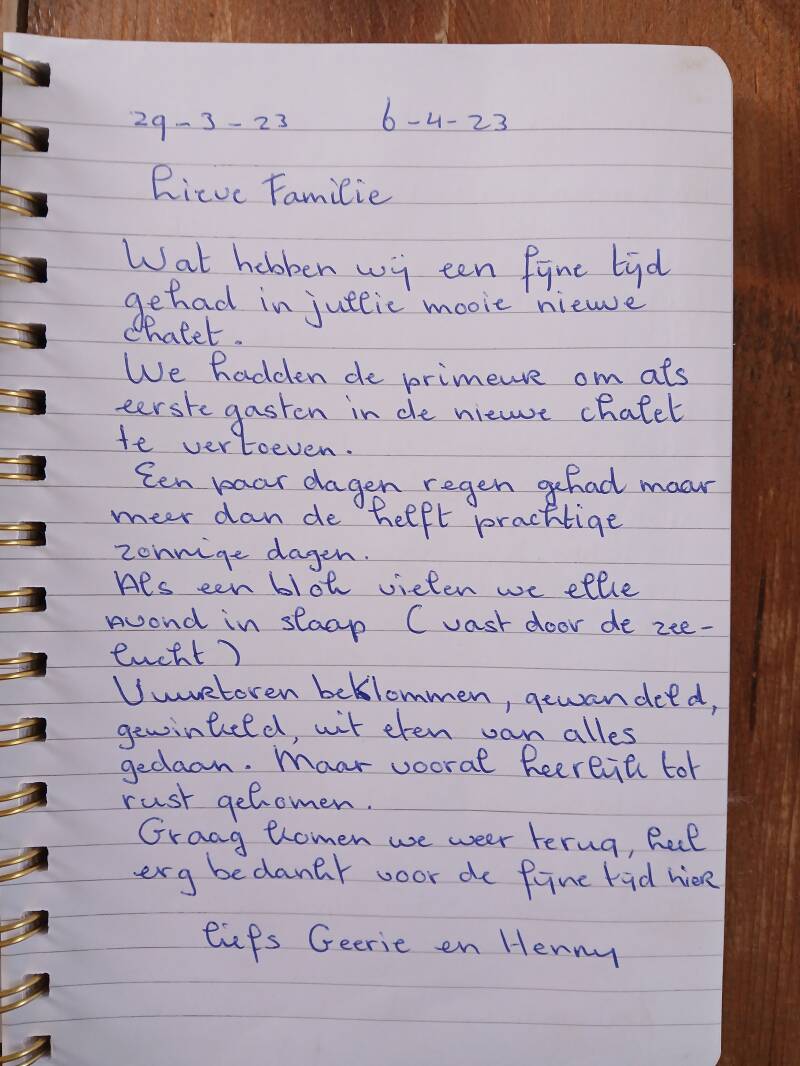 29-3-23 6-4-23
Lieve Familie
Wat hebben wij een fijne tijd
gehad in jullie mooie nieuwe
chalet.
We hadden de primeur om als
eerste gasten in de nieuwe chalet
te vertoeven.
Een paar dagen regen gehad maar
meer dan de helft prachtige
zonnige dagen.
Als een blok vielen we elke
avond in slaap (vast door de zee-
lucht)
Vuurtoren beklommen, gewandeld,
gewinkeld, uit eten van alles
gedaan. Maar vooral heerlijk tot
rust gekomen.
Graag komen we weer terug, heel
erg bedankt voor de fijne tijd hier
liefs Geerie en Henny